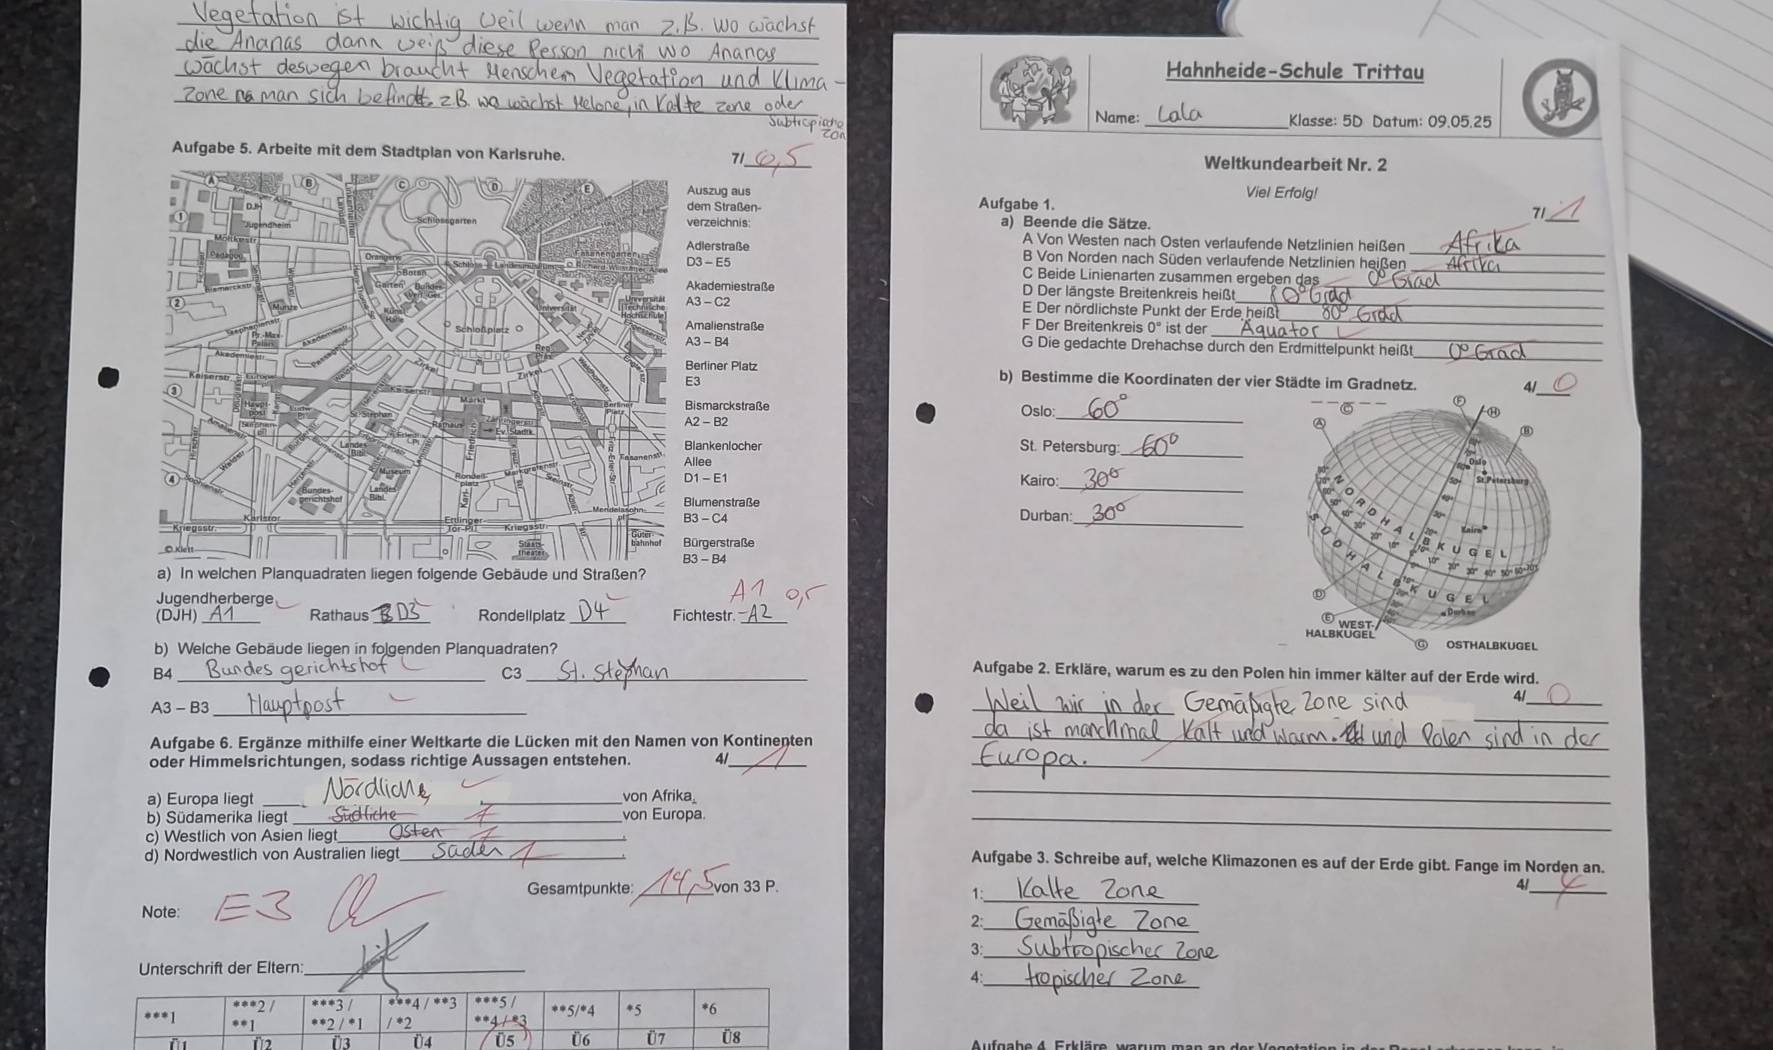 Vegetation ist wichtig weil wenn man z.B. wo wächst
die Ananas dann weiß diese Person nicht wo Ananas
wächst deswegen braucht Menschen Vegetation und Klima-
zone man sich befindet. z.B. wo wächst Melone, in Kalte zone oder
Subtropische
Zon
Aufgabe 5. Arbeite mit dem Stadtplan von Karlsruhe.
7/ 6,5
Auszug aus
dem Straßen-
verzeichnis:
Adlerstraße
D3 – E5
Akademiestraße
A3 – C2
Amalienstraße
A3 – B4
Berliner Platz
E3
Bismarckstraße
A2 – B2
Blankenlocher
Allee
D1 – E1
Blumenstraße
B3 – C4
Bürgerstraße
B3 – B4
A B C D E
1
DJH
Jugendheim
Schlossgarten
Moltkestr.
Orangerie
Botan.
Garten
Bundes-
Verf.-Ger.
Bismarckstr.
2
Münze
Kunst
Halle
Schloßplatz
Universität
Universität
Technische
Hochschule
Stephanienstr.
Pr.-Max-
Palais
Akademiestr.
Reg.
Präs.
Zirkel
Zirkel
Kaiserstr.
3
Haupt-
post
Markt
Berliner
Platz
St. Stephan
Rathaus
Ev. Stadtk.
Landes
Bibl.
Museum
Fasanenstr.
4
Rondell-
platz
Markgrafenstr.
Bundes-
gerichtshof
Landes
Bibl.
Mendelssohn-
Karlstor
Ettlinger-
Tor-Pl.
Kriegsstr.
Kriegsstr.
Güter-
bahnhof
Staats-
theater
© Klett
a) In welchen Planquadraten liegen folgende Gebäude und Straßen?
A1 0,5
Jugendherberge
(DJH) A1 Rathaus D3 Rondellplatz D4 Fichtestr. A2
b) Welche Gebäude liegen in folgenden Planquadraten?
B4 Bundes gerichtshof C3 St. Stephan
A3 – B3 Hauptpost
Aufgabe 6. Ergänze mithilfe einer Weltkarte die Lücken mit den Namen von Kontinenten
oder Himmelsrichtungen, sodass richtige Aussagen entstehen. 4/ 1
a) Europa liegt Nördlich von Afrika.
b) Südamerika liegt Südliche von Europa.
c) Westlich von Asien liegt Osten.
d) Nordwestlich von Australien liegt Süden.
Gesamtpunkte: 14,5 von 33 P.
Note: E3
Unterschrift der Eltern:
***1 ***2 / **1 ***3 / **2 / *1 ***4 / **3 / *2 ***5 / **4 / *3 **5/*4 *5 *6
Ü1 Ü2 Ü3 Ü4 Ü5 Ü6 Ü7 Ü8
Hahnheide-Schule Trittau
Name: Lala Klasse: 5D Datum: 09.05.25
Weltkundearbeit Nr. 2
Viel Erfolg!
Aufgabe 1.
7/ 1
a) Beende die Sätze.
A Von Westen nach Osten verlaufende Netzlinien heißen Afrika
B Von Norden nach Süden verlaufende Netzlinien heißen Afrika
C Beide Linienarten zusammen ergeben das 0° Grad
D Der längste Breitenkreis heißt 80° Grad
E Der nördlichste Punkt der Erde heißt 80° Grad
F Der Breitenkreis 0° ist der Äquator
G Die gedachte Drehachse durch den Erdmittelpunkt heißt 0° Grad
b) Bestimme die Koordinaten der vier Städte im Gradnetz. 4/ 0
Oslo: 60°
St. Petersburg: 60°
Kairo: 30°
Durban: 30°
C F H
A B
Oslo
St. Petersburg
Kairo
NORDHALBKUGEL
SÜDHALBKUGEL
Durban
D
E WEST-
HALBKUGEL
G OSTHALBKUGEL
Aufgabe 2. Erkläre, warum es zu den Polen hin immer kälter auf der Erde wird.
4/ 0
Weil wir in der Gemäßigte Zone sind
da ist manchmal Kalt und warm. und Polen sind in der
Europa.
Aufgabe 3. Schreibe auf, welche Klimazonen es auf der Erde gibt. Fange im Norden an.
4/ 4
1: Kalte Zone
2: Gemäßigte Zone
3: Subtropischer Zone
4: tropischer Zone